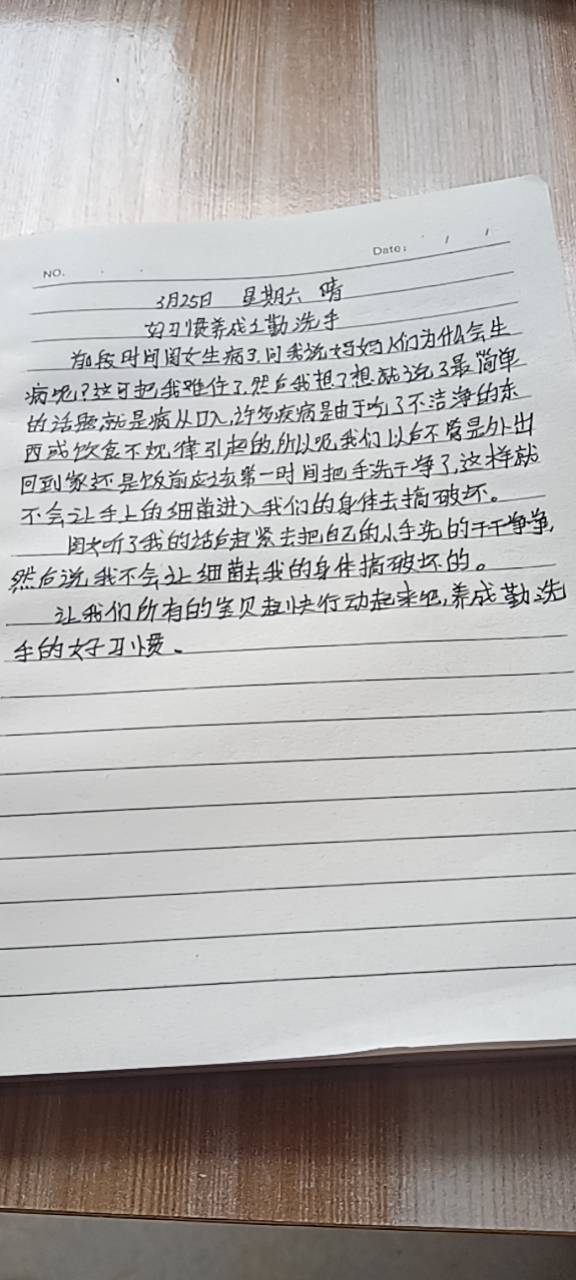 NO.
Date:
3月25日 星期六 晴
好习惯养成之勤洗手
前段时间闺女生病了,问我说妈妈人们为什么会生
病呢?这可把我难住了,然后我想了想就说了最简单
的话题就是病从口入,许多疾病是由于吃了不洁净的东
西或饮食不规律引起的,所以呢,我们以后不管是外出
回到家还是饭前应该第一时间把手洗干净了,这样就
不会让手上的细菌进入我们的身体去搞破坏。
闺女听了我的话后赶紧去把自己的小手洗的干干净净,
然后说,我不会让细菌去我的身体搞破坏的。
让我们所有的宝贝赶快行动起来吧,养成勤洗
手的好习惯。